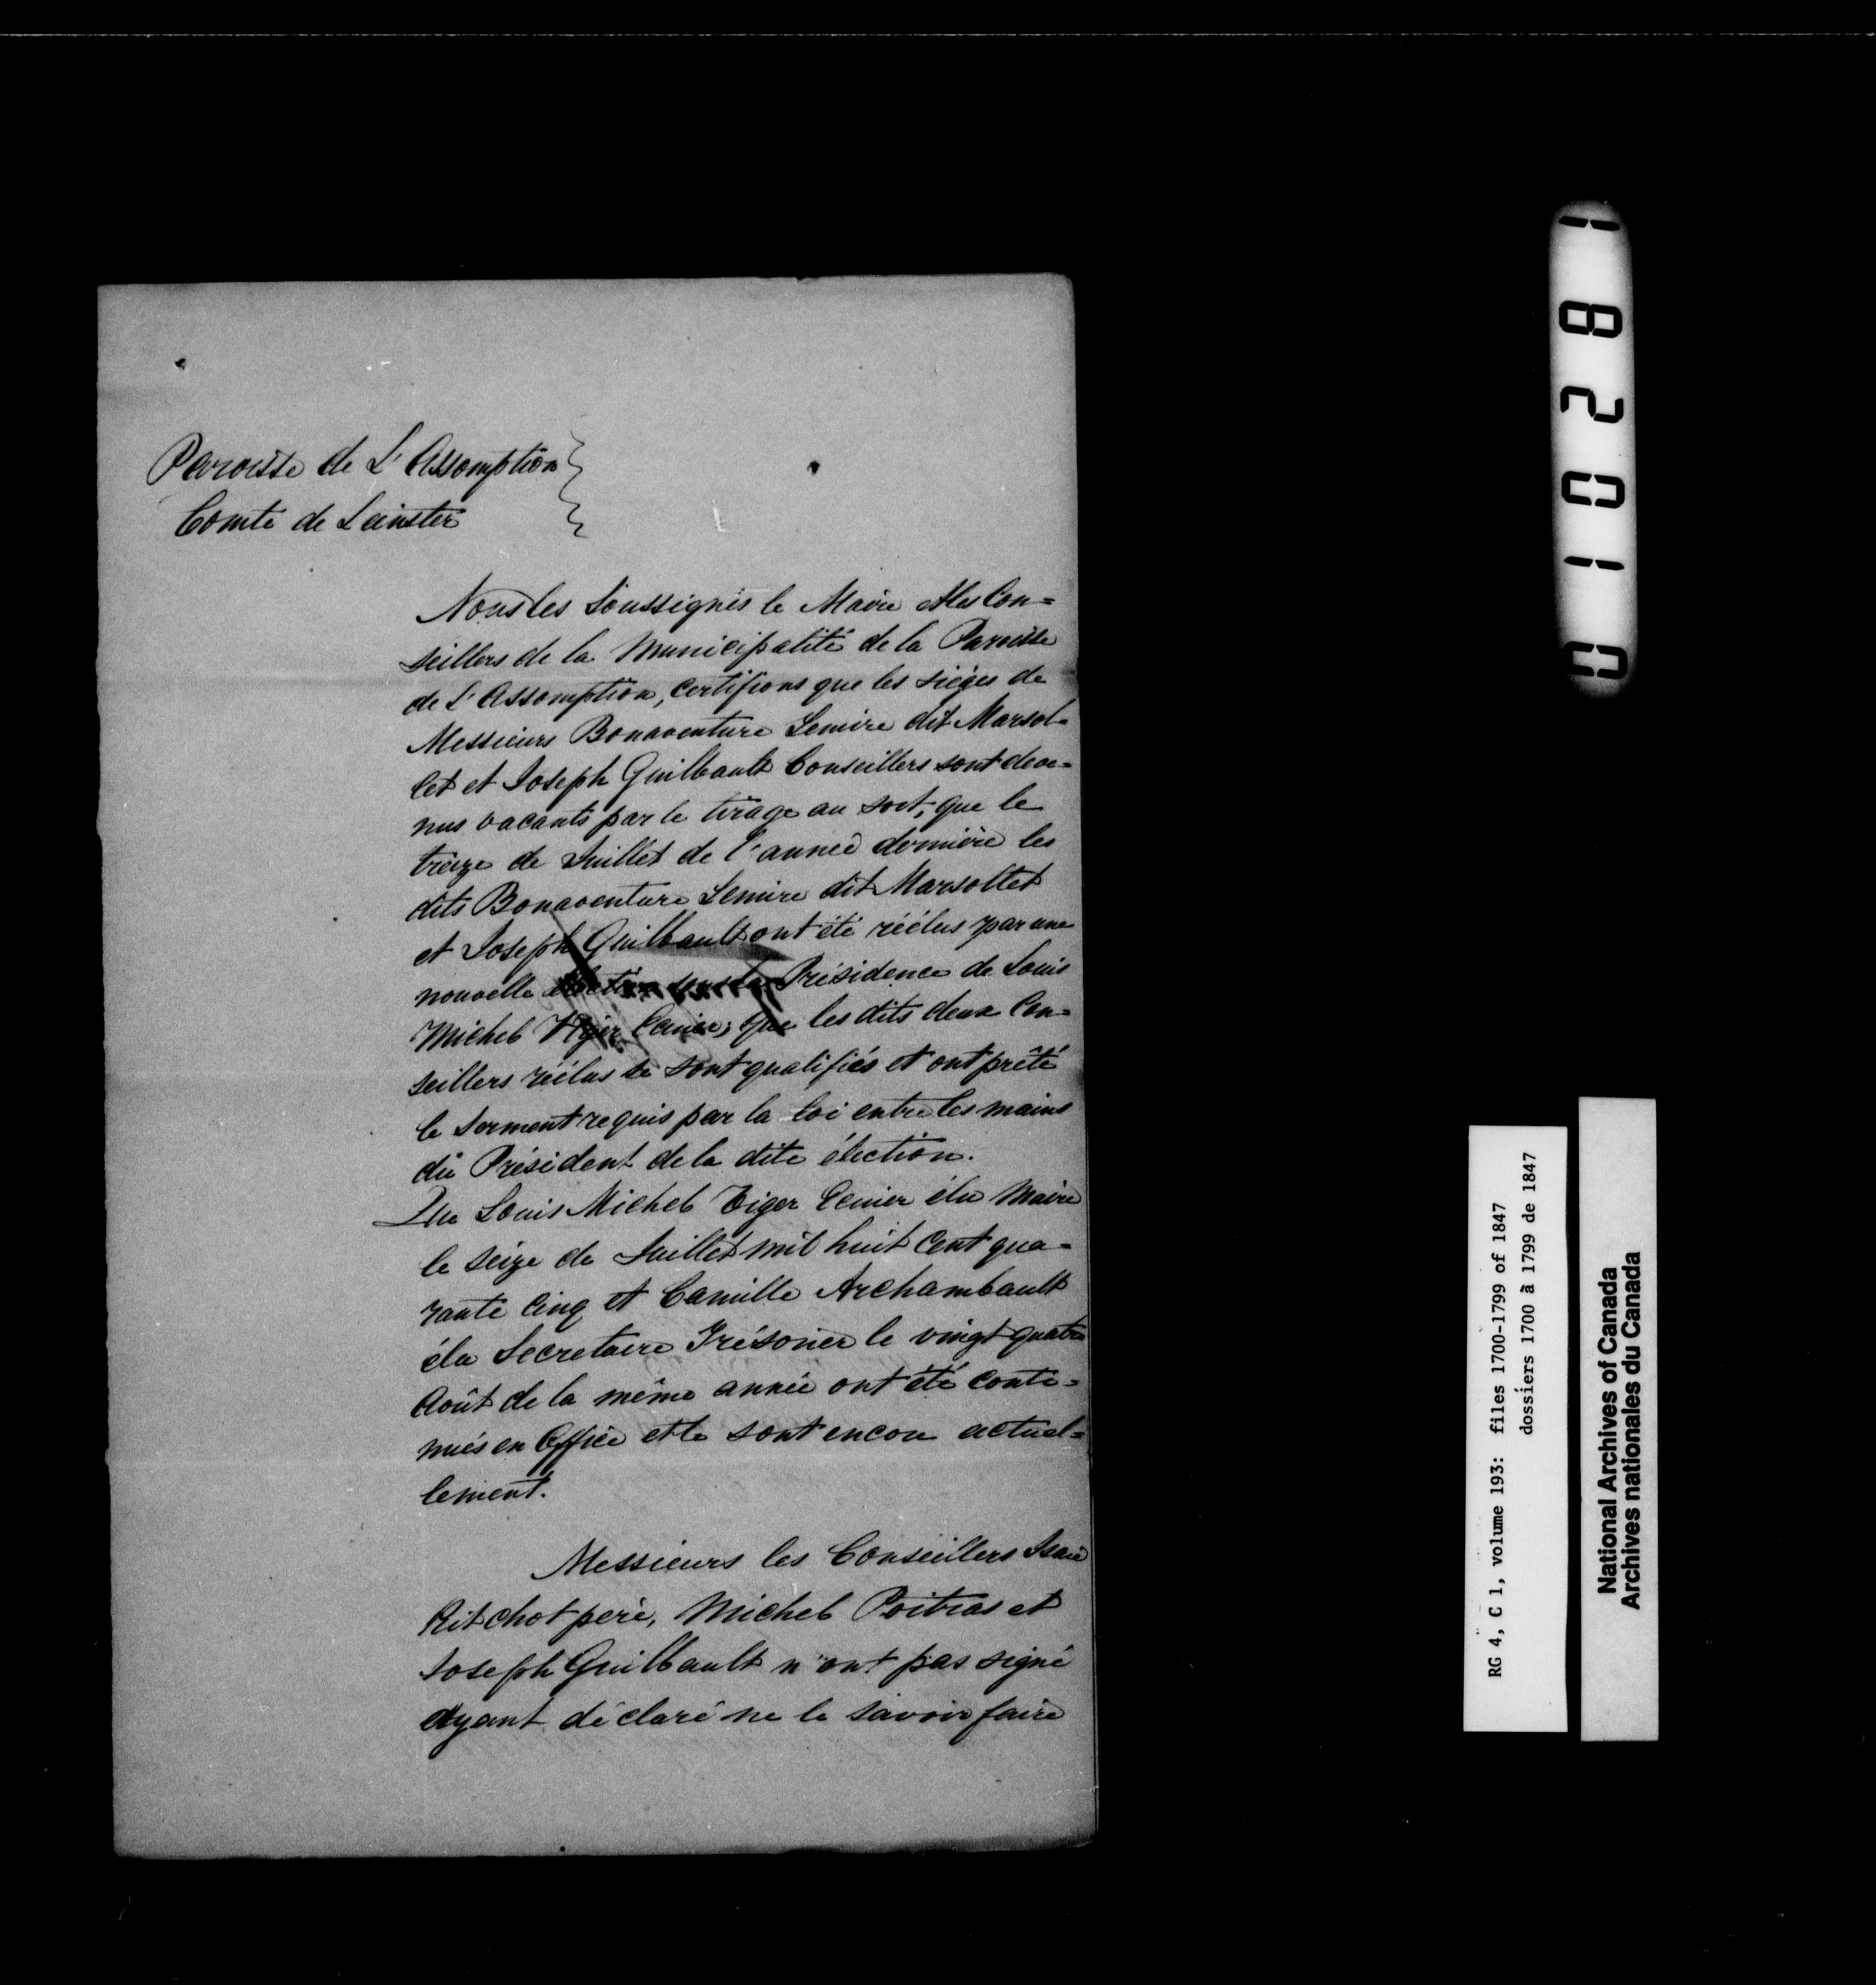 Paroisse de L'Assomption
Comté de Leinster
Nous les Soussignés le Maire et les Con=
seillers de la Municipalité de la Paroisse
de L'Assomption, Certifions que les sièges de
Messieurs Bonaventure Lemire dit Marsol=
let et Joseph Guilbault Conseillers sont deve=
nus vacants par le tirage au sort, que le
treize de Juillet de l'année dernière les
dits Bonaventure Lemire dit Marsollet
et Joseph Guilbault ont été réélus par une
nouvelle élection sous la Présidence de Louis
Michel Viger Ecuier; que les dits deux Con=
seillers réélus se sont qualifiés et ont prêté
le serment requis par la loi entre les mains
du Président de la dite élection.
Que Louis Michel Viger Ecuier élu Maire
le seize de Juillet mil huit Cent qua=
rante Cinq et Camille Archambault
élu Secretaire Trésorier le vingt quatre
Août de la même année ont été conti=
nués en Office et le sont encore actuel=
lement.
Messieurs les Conseillers Isaie
Ritchot père, Michel Poitras et
Joseph Guilbault n'ont pas signé
ayant déclaré ne le savoir faire
01028 1
RG 4, C 1, volume 193: files 1700-1799 of 1847
dossiers 1700 à 1799 de 1847
National Archives of Canada
Archives nationales du Canada